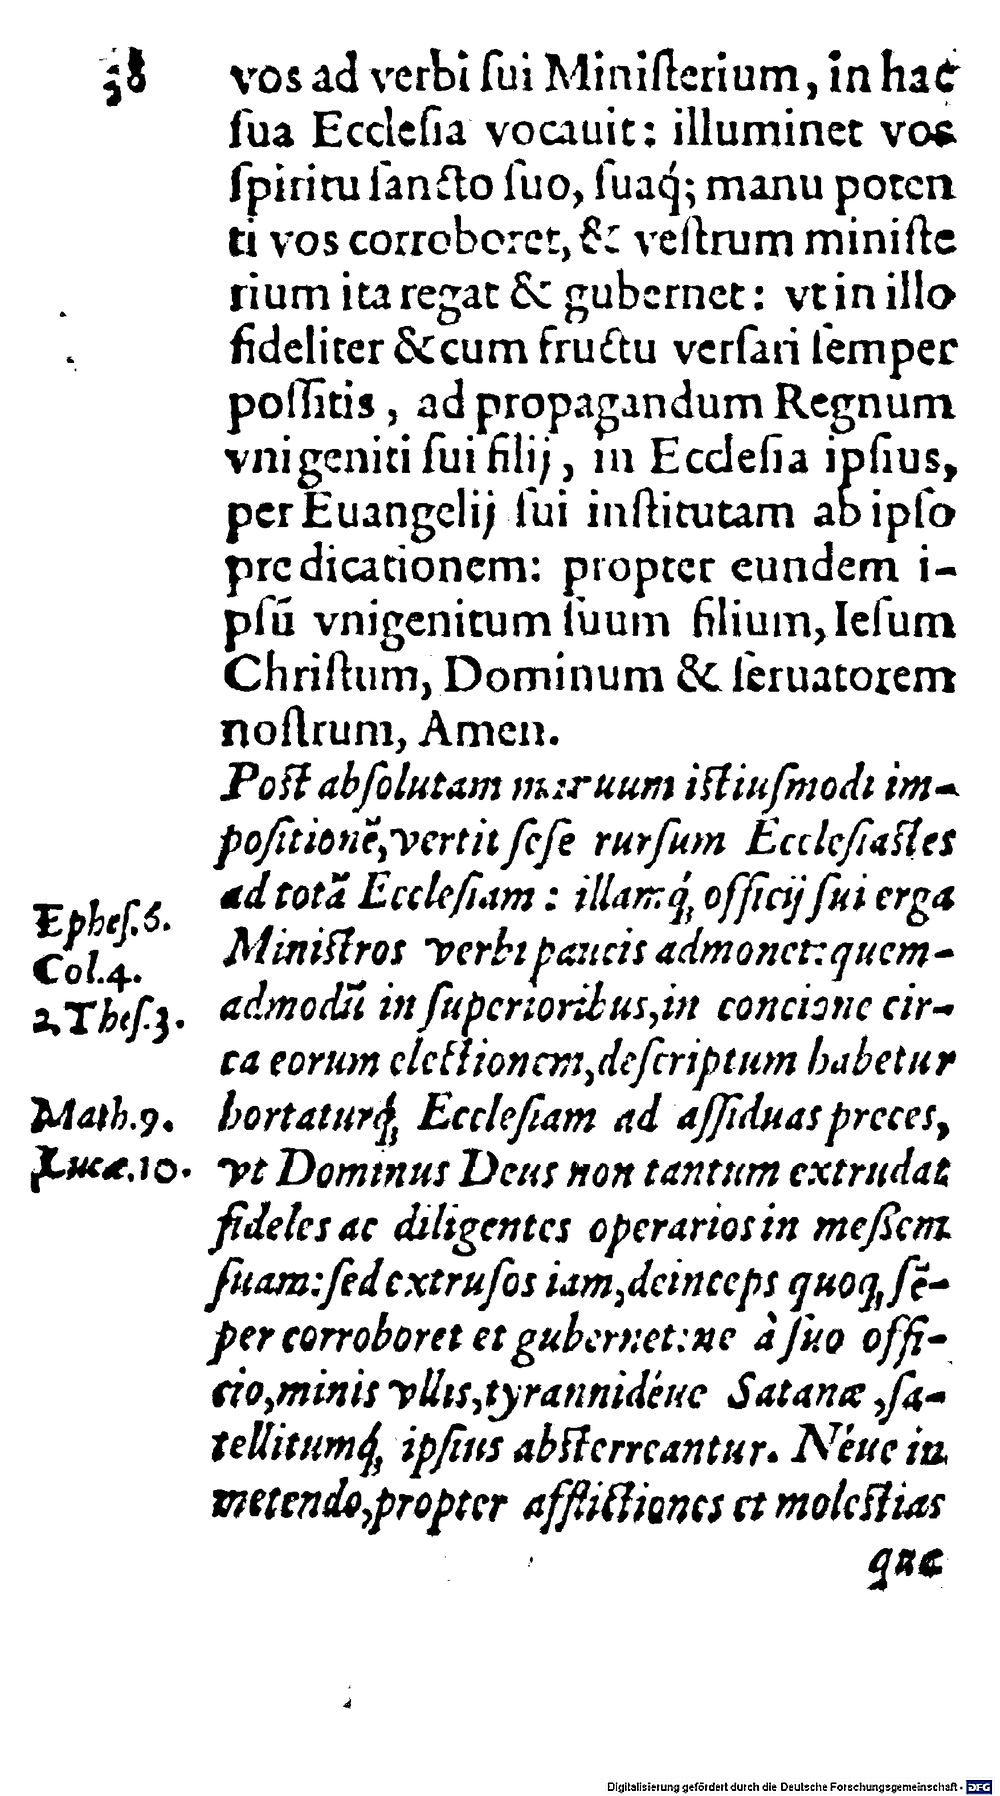 38
vos ad verbi ſui Miniſterium, in hac
ſua Eccleſia vocauit: illuminet vos
ſpiritu ſancto ſuo, ſuaq́; manu poten
ti vos corroboret, & veſtrum miniſte
rium ita regat & gubernet: vt in illo
fideliter & cum fructu verſari ſemper
poſſitis, ad propagandum Regnum
vnigeniti ſui filij, in Eccleſia ipſius,
per Euangelij ſui inſtitutam ab ipſo
predicationem: propter eundem i-
pſū vnigenitum ſuum filium, Ieſum
Chriſtum, Dominum & ſeruatorem
noſtrum, Amen.
Poſt abſolutam manuum iſtiuſmodi im-
poſitionē, vertit ſeſe rurſum Eccleſiaſtes
ad totā Eccleſiam: illamq́; officij ſui erga
Epheſ.6.
Miniſtros verbi paucis admonet: quem-
Col.4.
admodū in ſuperioribus, in concione cir-
2.Theſ.3.
ca eorum electionem, deſcriptum habetur
hortaturq́; Eccleſiam ad aſſiduas preces,
Math.9.
vt Dominus Deus non tantum extrudat
Lucæ.10.
fideles ac diligentes operarios in meßem
ſuam: ſed extruſos iam, deinceps quoq; ſē-
per corroboret et gubernet: ne à ſuo offi-
cio, minis vllis, tyrannidéue Satanæ, ſa-
tellitumq́; ipſius abſterreantur. Néue in
metendo, propter afflictiones et moleſtias
que
Digitalisierung gefördert durch die Deutsche Forschungsgemeinschaft - DFG